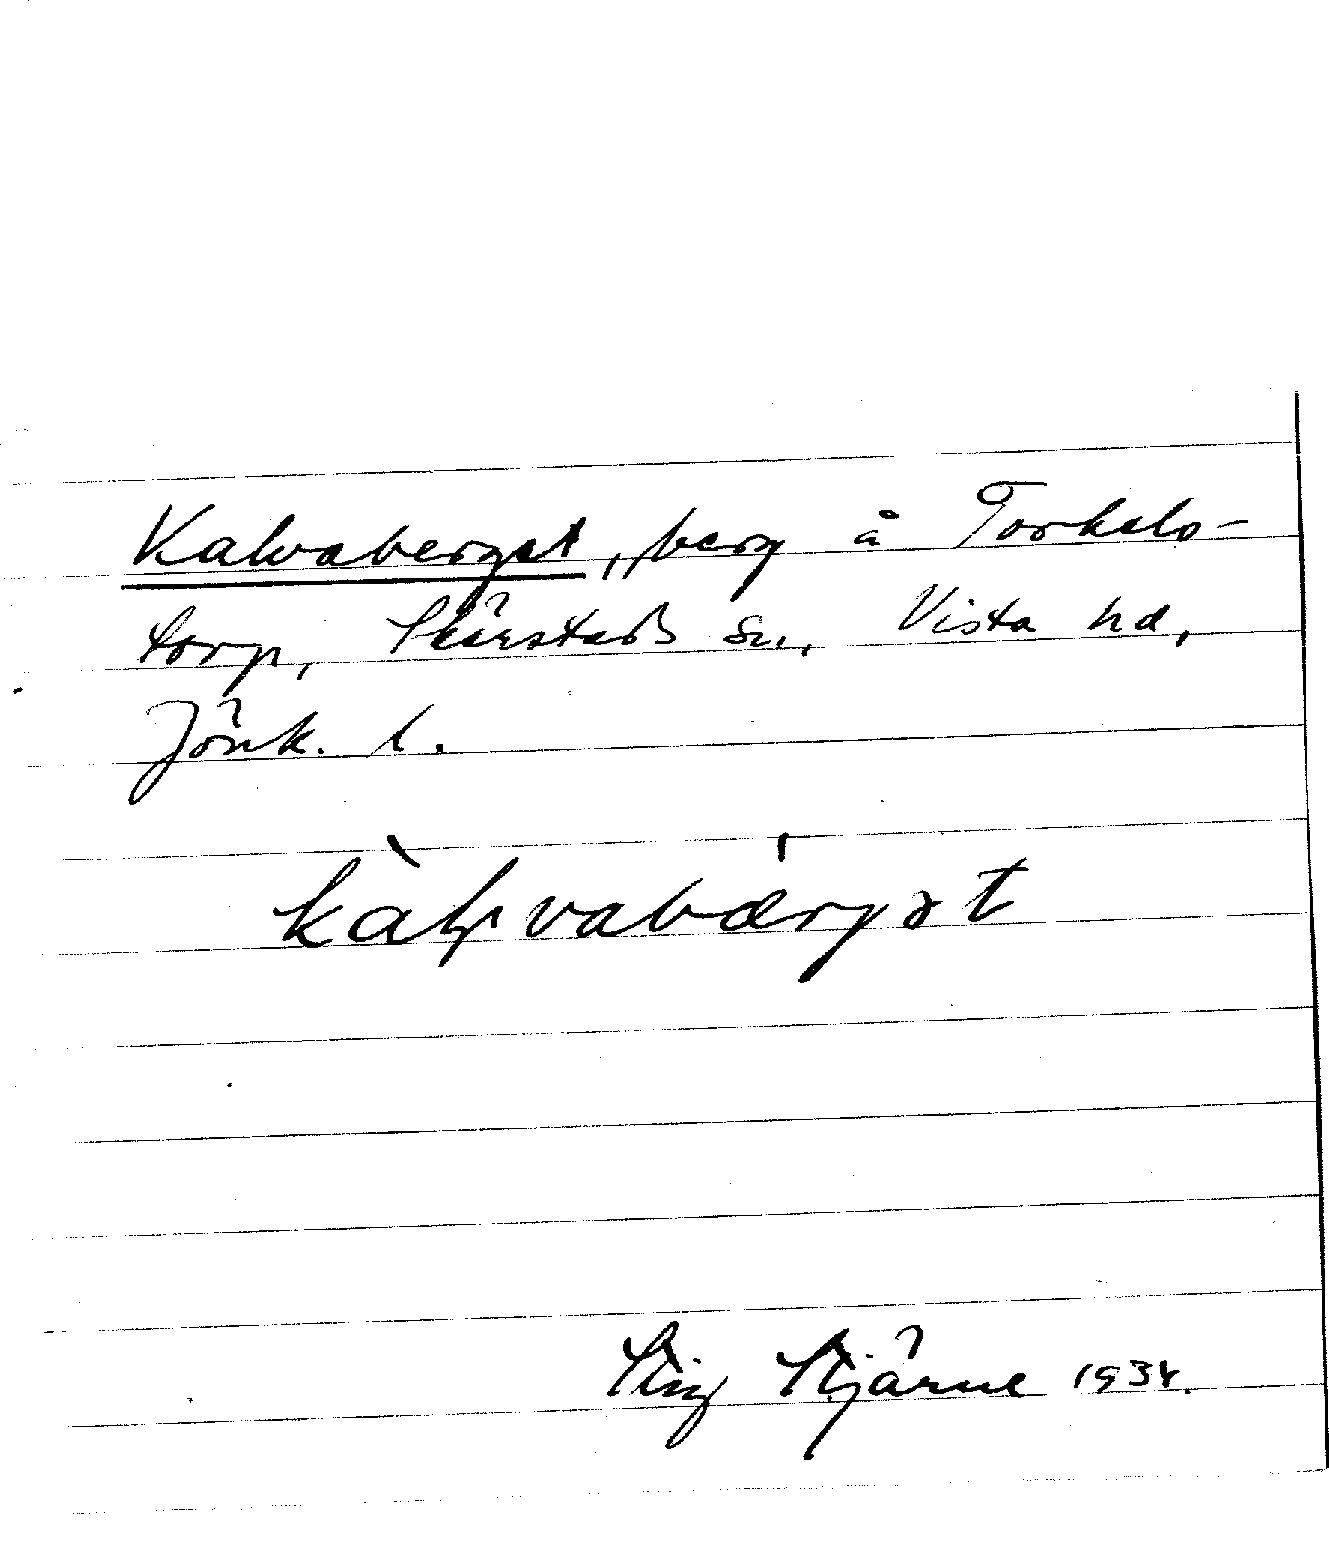 Kalvaberget, berg å Torkels-
torp, Skärstads sn., Vista hd,
Jönk. l.
kàḷvabærgət
Stig Stjärne 1934.